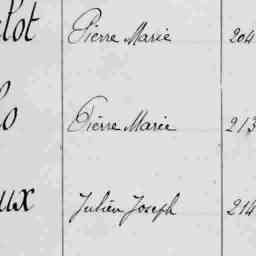 lot Pierre Marie 204
o Pierre Marie 213
ux Julien Joseph 214